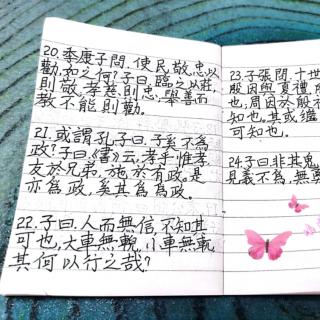 20.季康子問.使民敬.忠以
勸.如之何?子曰.臨之以莊.
則敬.孝慈.則忠.舉善而
教不能則勸.
21.或謂孔子曰.子奚不為
政?子曰.《書》云.孝乎惟孝
友於兄弟.施於有政.是
亦為政,奚其為為政.
22.子曰.人而無信,不知其
可也,大車無輗,小車無軏,
其何以行之哉?
23.子張問.十世
殷因與夏禮.所
也;周因於殷
知也.其或继
可知也.
24.子曰非其鬼
見義不為,無勇